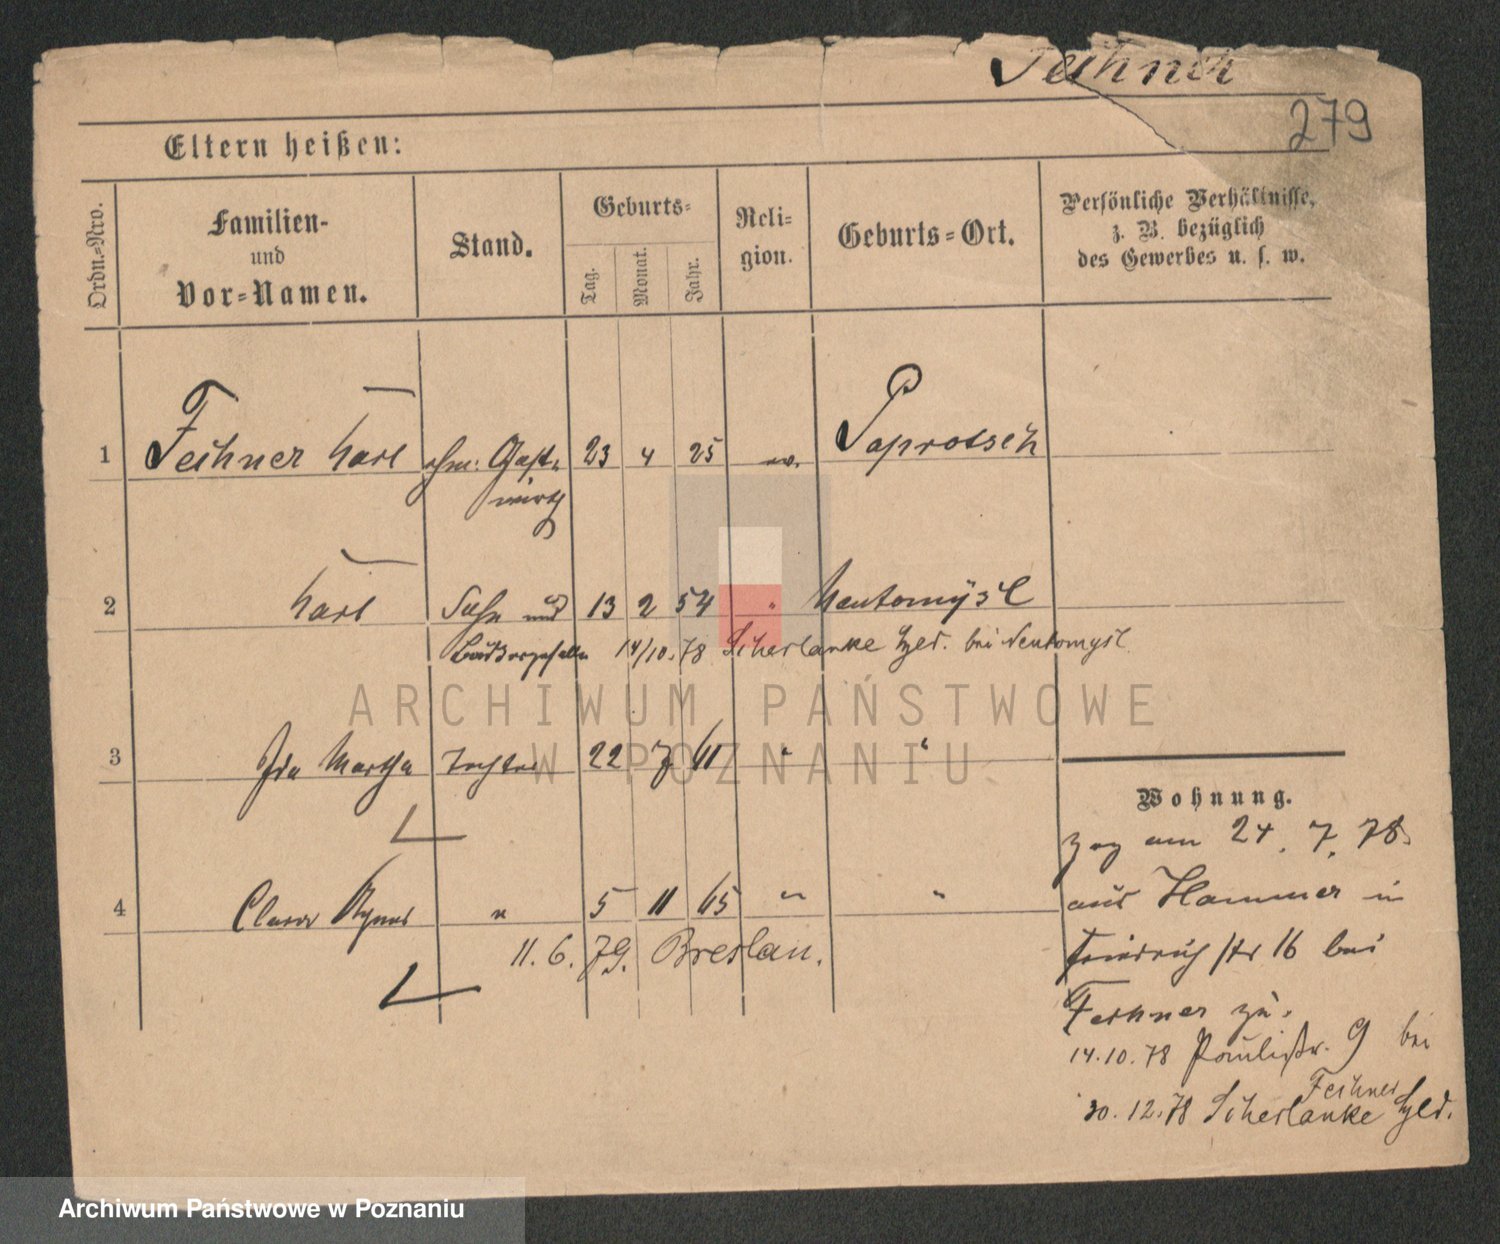 Fechner
279
Eltern heißen:
Ordn.-Nro.
Familien-
und
Vor-Namen.
Stand.
Geburts-
Tag.
Monat.
Jahr.
Reli-
gion.
Geburts-Ort.
Persönliche Verhältnisse,
z. B. bezüglich
des Gewerbes u. s. w.
1 Fechner Karl ehm: Gast- 23 4 25 ev. Paprotsch
wirth
2 Karl Sohn und 13 2 54 " Neutomysl
14/10.78 Scherlanke Hld. bei Neutomysl
3 Ida Martha Tochter 22 7 61 " "
4 Clara Agnes " 5 11 65 " "
11. 6. 79. Breslau.
Wohnung.
Zog am 24. 7. 78.
aus Hammer in
Friedrich str 16 bei
Fechner zu.
14.10.78 Paulistr. 9 bei
Fechner
30.12.78 Scherlanke Hld.
ARCHIWUM PAŃSTWOWE
W POZNANIU
Archiwum Państwowe w Poznaniu